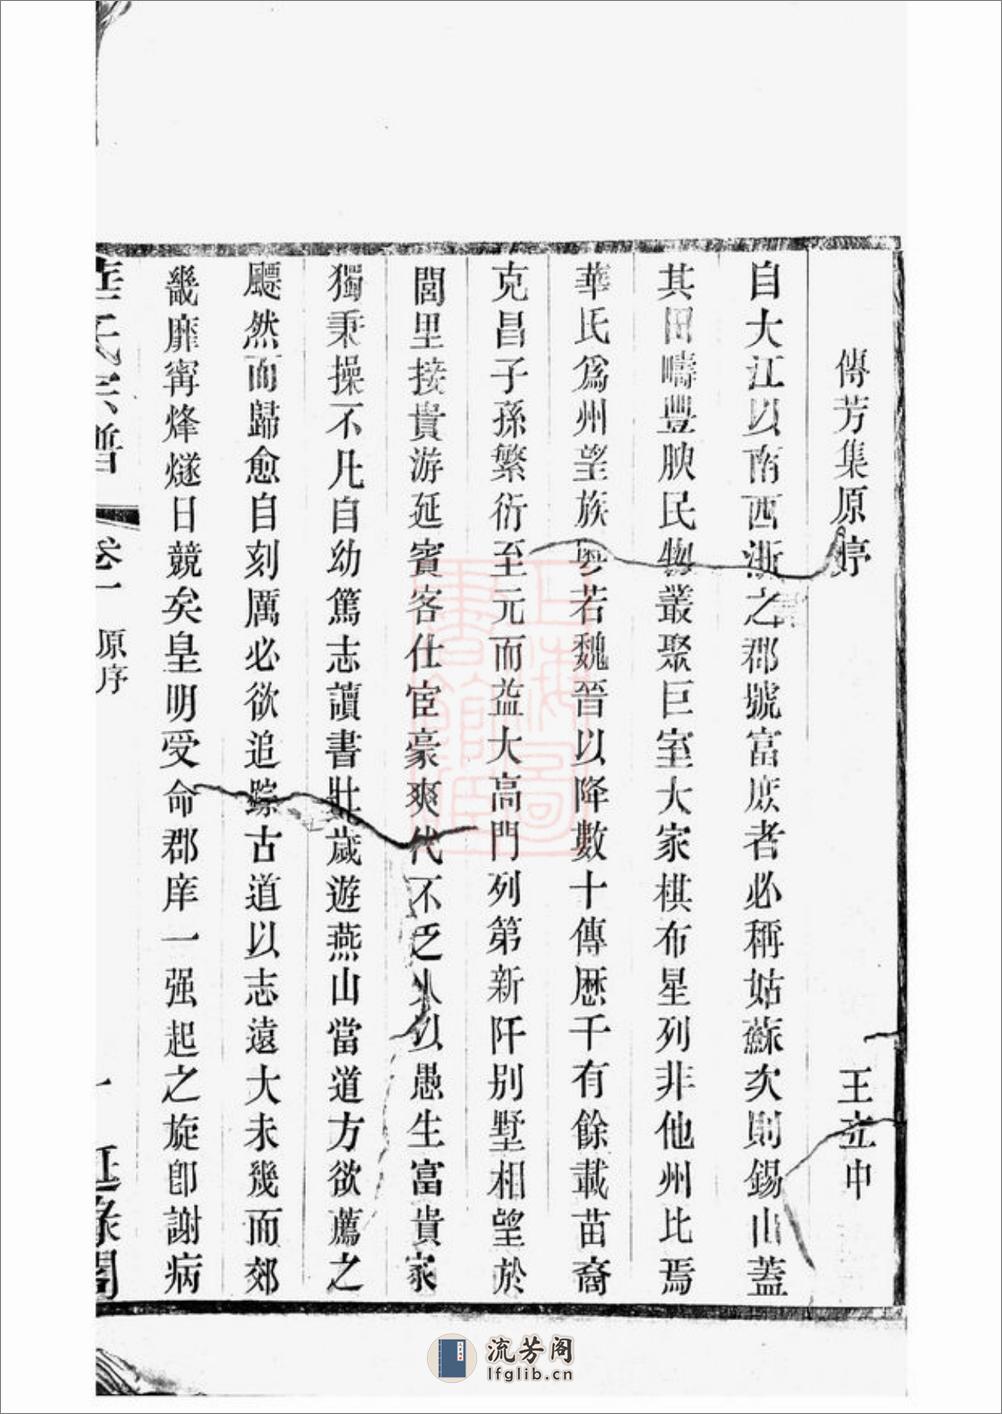 傳芳集原序　王立中
自大江以南西浙之郡號富庶者必稱姑蘇次則錫山蓋
其田疇豐腴民物叢聚巨室大家棋布星列非他州比焉
華氏爲州望族粤若魏晉以降數十傳歷千有餘載苗裔
克昌子孫繁衍至元而益大高門列第新阡别墅相望於
閭里接貴游延賓客仕宦豪爽代不乏人以愚生富貴家
獨秉操不凡自幼篤志讀書壯歲遊燕山當道方欲薦之
飃然而歸愈自刻厲必欲追踪古道以志遠大未幾而郊
畿靡寗烽燧日競矣皇明受命郡庠一强起之旋卽謝病
華氏宗譜
卷一
原序
一
上海圖書館藏
流芳阁
lfglib.cn